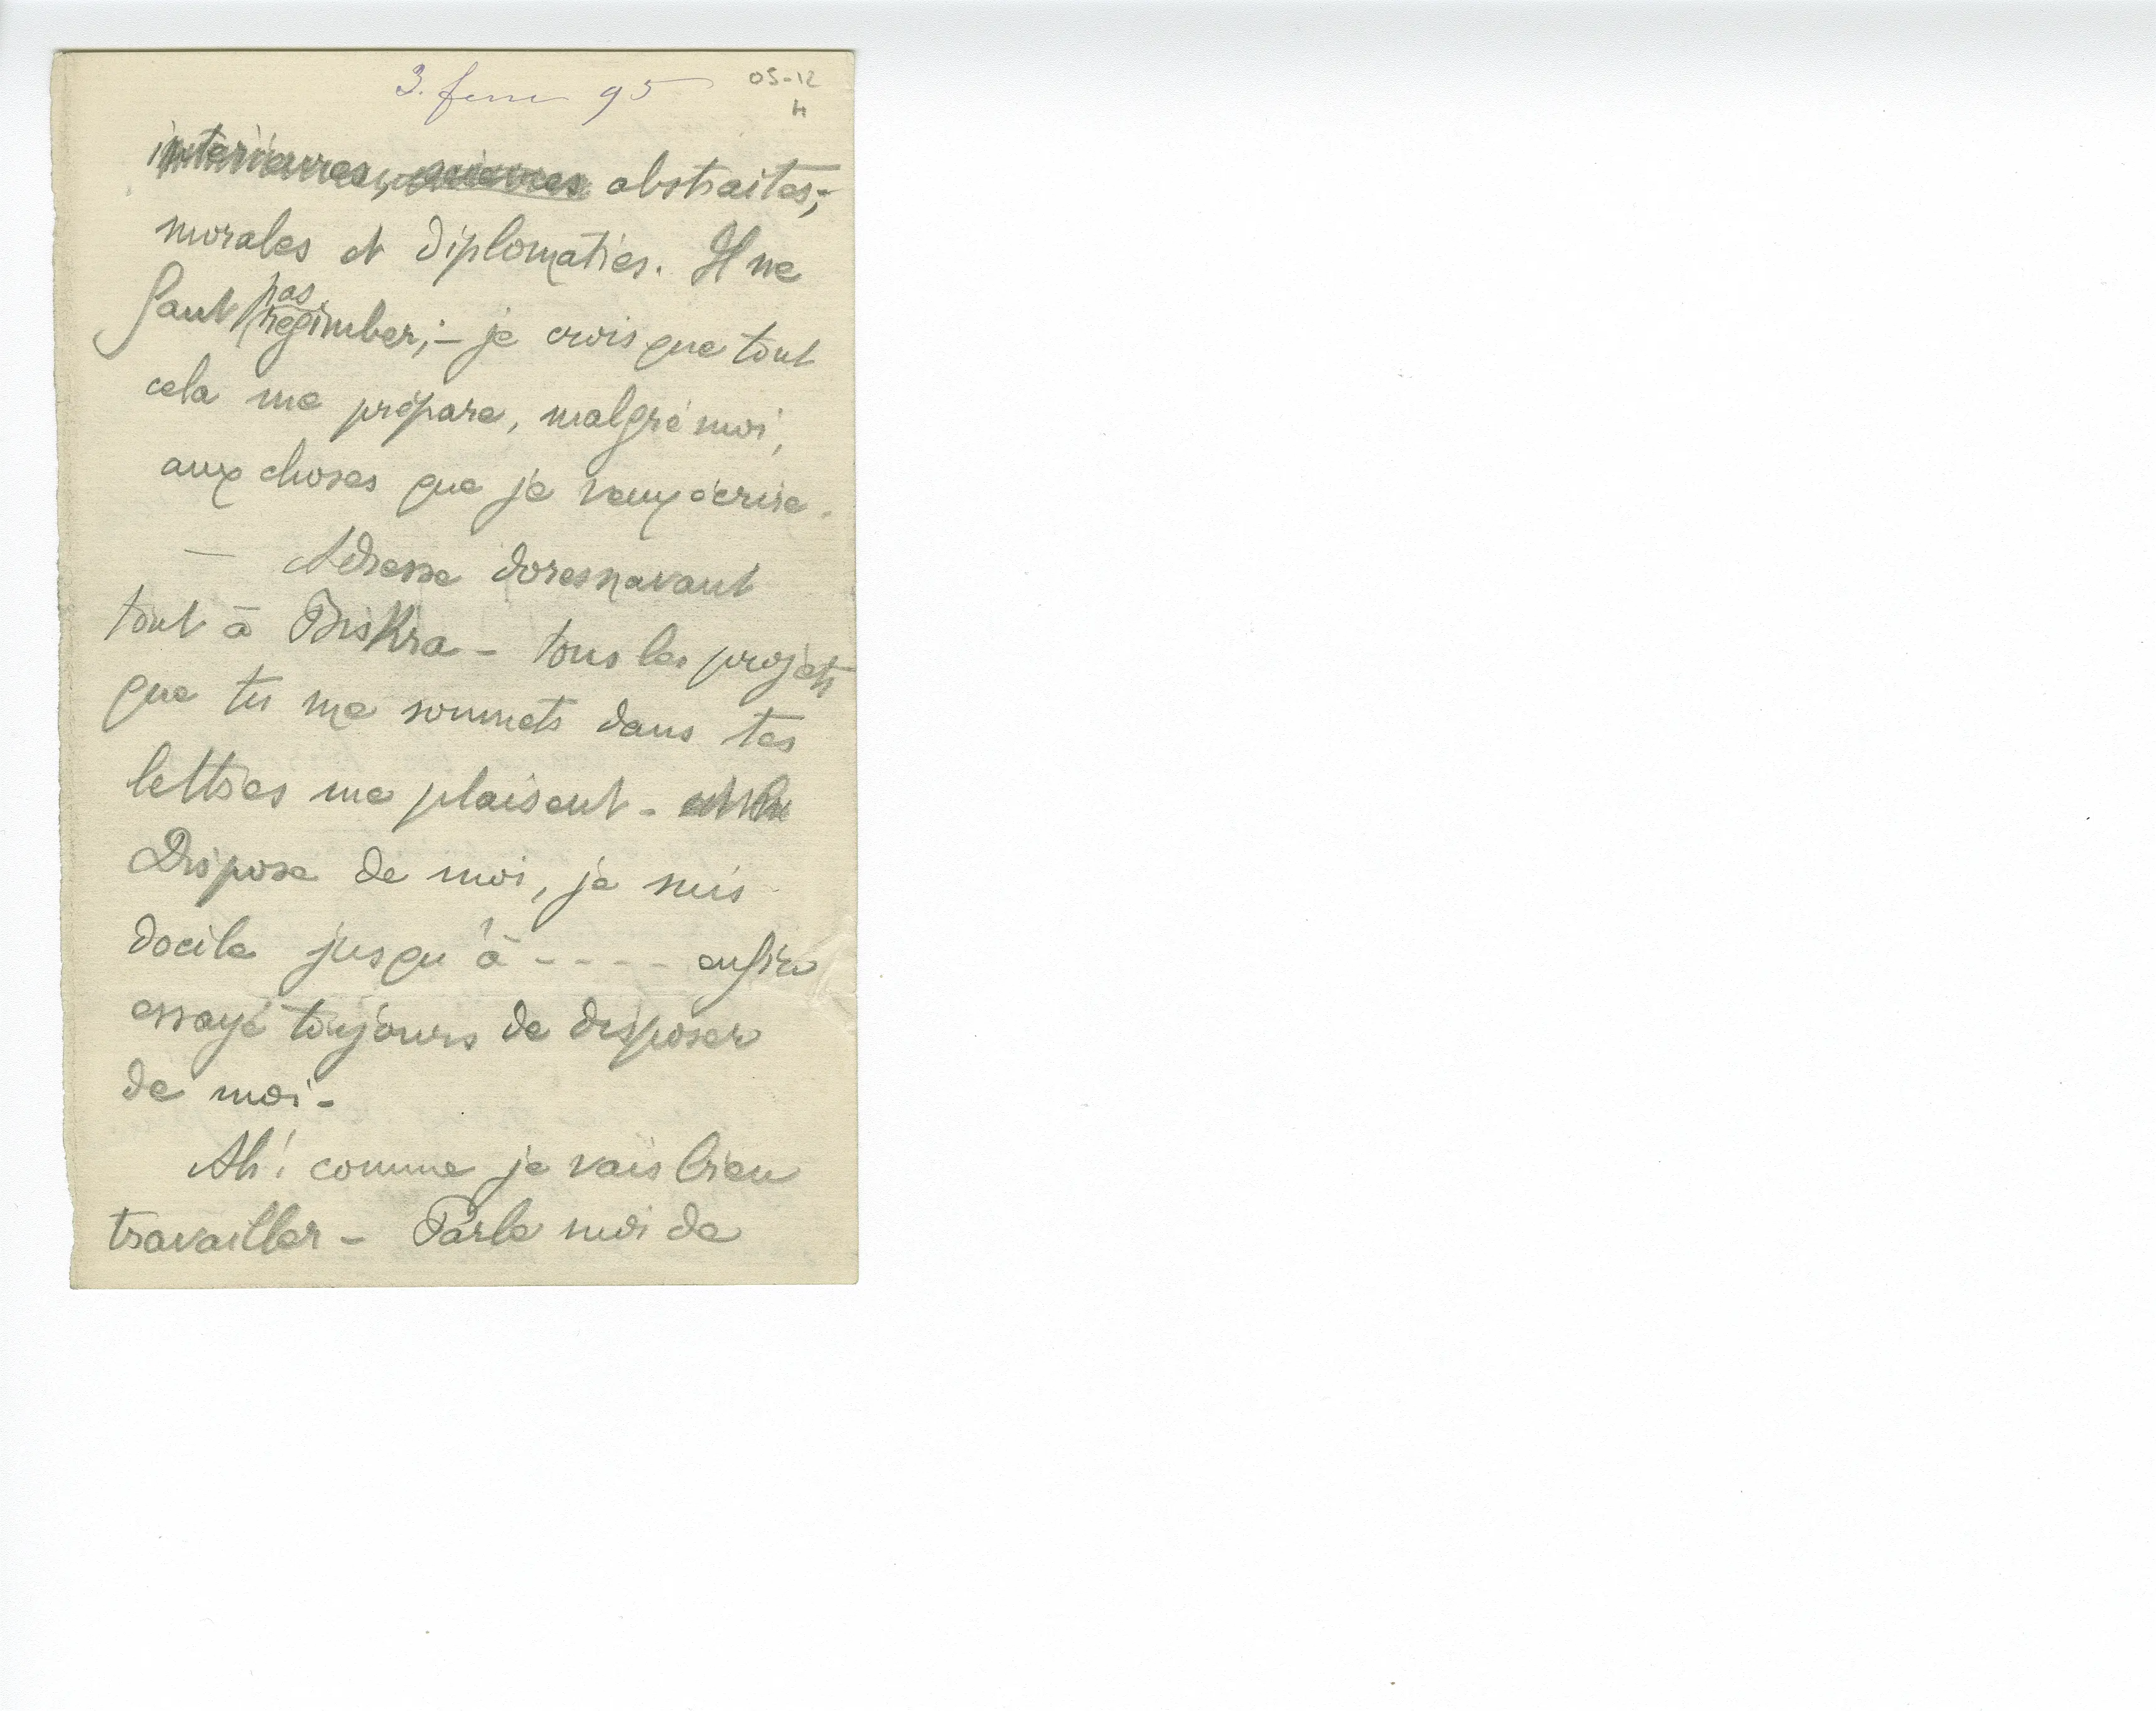 3. fevr 95
05-12
H
intérieures, abstraites;
morales et diplomaties. Il ne
faut pas regimber; – je crois que tout
cela me prépare, malgré moi,
aux choses que je veux écrire.
— Adresse doresnavant
tout à Biskra – tous les projets
que tu me soumets dans tes
lettres me plaisent –
Dispose de moi, je suis
docile jusqu'à - - - - enfin
essaye toujours de disposer
de moi –
Ah! comme je vais bien
travailler – Parle moi de